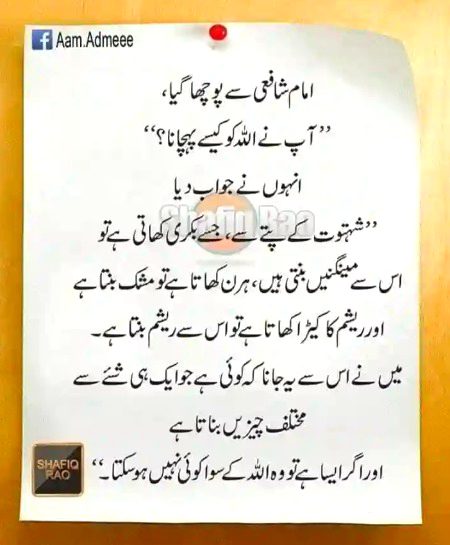 Aam.Admeee
امام شافعی سے پوچھا گیا،
”آپ نے اللہ کو کیسے پہچانا؟“
انہوں نے جواب دیا
Shafiq Rao
”شہتوت کے پتے سے، جسے بکری کھاتی ہے تو
اس سے مینگنیں بنتی ہیں، ہرن کھاتا ہے تو مشک بنتا ہے
اور ریشم کا کیڑا کھاتا ہے تو اس سے ریشم بنتا ہے۔
میں نے اس سے یہ جانا کہ کوئی ہے جو ایک ہی شئے سے
مختلف چیزیں بناتا ہے
اور اگر ایسا ہے تو وہ اللہ کے سوا کوئی نہیں ہو سکتا۔“
SHAFIQ
RAO